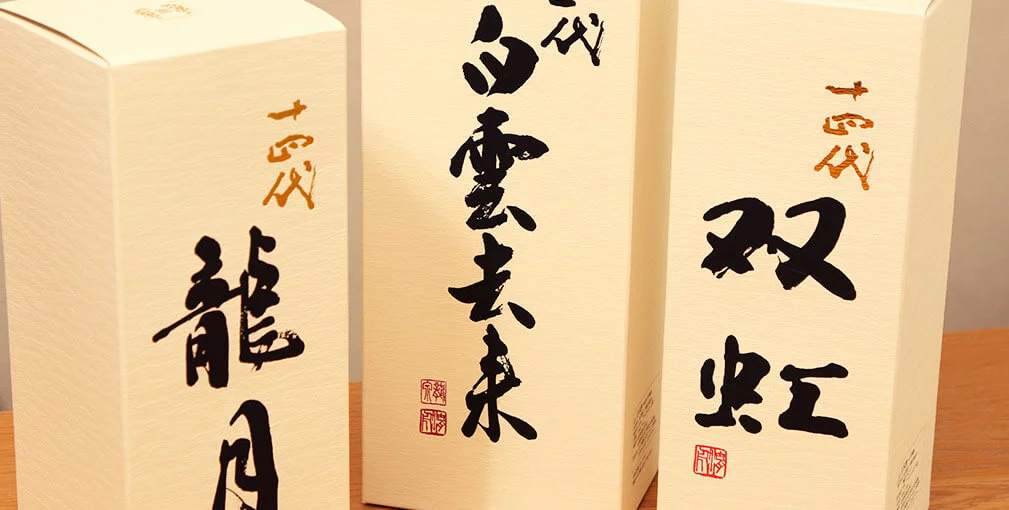 十四代
龍月
代
白雲去来
十四代
双虹